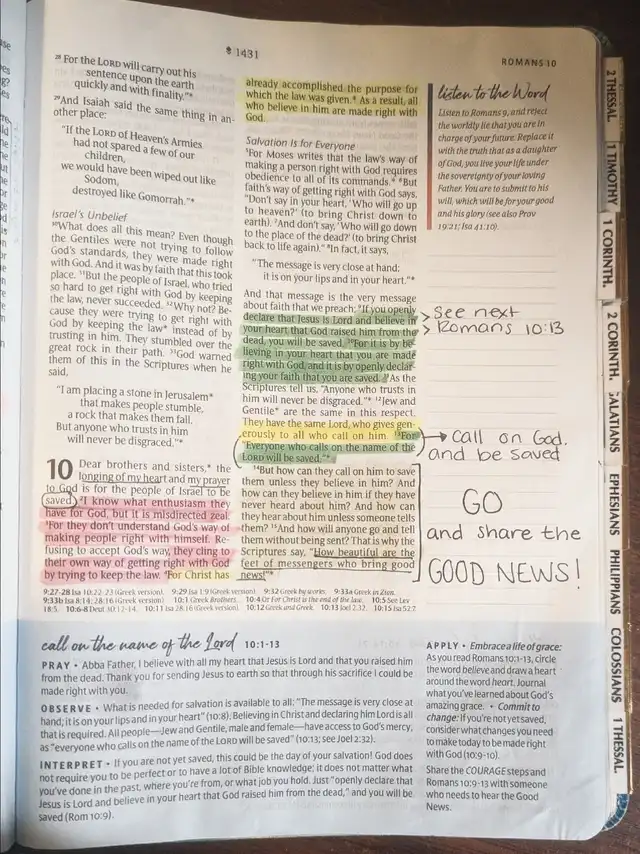 1431
ROMANS 10
²⁸ For the LORD will carry out his
sentence upon the earth
quickly and with finality."*
²⁹And Isaiah said the same thing in an-
other place:
"If the LORD of Heaven's Armies
had not spared a few of our
children,
we would have been wiped out like
Sodom,
destroyed like Gomorrah."*
Israel's Unbelief
³⁰What does all this mean? Even though
the Gentiles were not trying to follow
God's standards, they were made right
with God. And it was by faith that this took
place. ³¹But the people of Israel, who tried
so hard to get right with God by keeping
the law, never succeeded. ³²Why not? Be-
cause they were trying to get right with
God by keeping the law* instead of by
trusting in him. They stumbled over the
great rock in their path. ³³God warned
them of this in the Scriptures when he
said,
"I am placing a stone in Jerusalem*
that makes people stumble,
a rock that makes them fall.
But anyone who trusts in him
will never be disgraced."*
10 Dear brothers and sisters,* the
longing of my heart and my prayer
to God is for the people of Israel to be
saved. ²I know what enthusiasm they
have for God, but it is misdirected zeal.
³For they don't understand God's way of
making people right with himself. Re-
fusing to accept God's way, they cling to
their own way of getting right with God
by trying to keep the law. ⁴For Christ has
already accomplished the purpose for
which the law was given.* As a result, all
who believe in him are made right with
God.
Salvation Is for Everyone
⁵For Moses writes that the law's way of
making a person right with God requires
obedience to all of its commands.* ⁶But
faith's way of getting right with God says,
"Don't say in your heart, 'Who will go up
to heaven?' (to bring Christ down to
earth). ⁷And don't say, 'Who will go down
to the place of the dead?' (to bring Christ
back to life again)." ⁸In fact, it says,
"The message is very close at hand;
it is on your lips and in your heart."*
And that message is the very message
about faith that we preach: ⁹If you openly
declare that Jesus is Lord and believe in
your heart that God raised him from the
dead, you will be saved. ¹⁰For it is by be-
lieving in your heart that you are made
right with God, and it is by openly declar-
ing your faith that you are saved. ¹¹As the
Scriptures tell us, "Anyone who trusts in
him will never be disgraced."* ¹²Jew and
Gentile* are the same in this respect.
They have the same Lord, who gives gen-
erously to all who call on him. ¹³For
"Everyone who calls on the name of the
LORD will be saved."*
¹⁴But how can they call on him to save
them unless they believe in him? And
how can they believe in him if they have
never heard about him? And how can
they hear about him unless someone tells
them? ¹⁵And how will anyone go and tell
them without being sent? That is why the
Scriptures say, "How beautiful are the
feet of messengers who bring good
news!"*
listen to the Word
Listen to Romans 9, and reject
the worldly lie that you are in
charge of your future. Replace it
with the truth that as a daughter
of God, you live your life under
the sovereignty of your loving
Father. You are to submit to his
will, which will be for your good
and his glory (see also Prov
19:21; Isa 41:10).
see next
Romans 10:13
call on God.
and be saved
GO
and share the
GOOD NEWS!
9:27-28 Isa 10:22-23 (Greek version). 9:29 Isa 1:9 (Greek version). 9:32 Greek by works. 9:33a Greek in Zion.
9:33b Isa 8:14; 28:16 (Greek version). 10:1 Greek Brothers. 10:4 Or For Christ is the end of the law. 10:5 See Lev
18:5. 10:6-8 Deut 30:12-14. 10:11 Isa 28:16 (Greek version). 10:12 Greek and Greek. 10:13 Joel 2:32. 10:15 Isa 52:7.
call on the name of the Lord 10:1-13
PRAY • Abba Father, I believe with all my heart that Jesus is Lord and that you raised him
from the dead. Thank you for sending Jesus to earth so that through his sacrifice I could be
made right with you.
OBSERVE • What is needed for salvation is available to all: "The message is very close at
hand; it is on your lips and in your heart" (10:8). Believing in Christ and declaring him Lord is all
that is required. All people—Jew and Gentile, male and female—have access to God's mercy,
as "everyone who calls on the name of the LORD will be saved" (10:13; see Joel 2:32).
INTERPRET • If you are not yet saved, this could be the day of your salvation! God does
not require you to be perfect or to have a lot of Bible knowledge; it does not matter what
you've done in the past, where you're from, or what job you hold. Just "openly declare that
Jesus is Lord and believe in your heart that God raised him from the dead," and you will be
saved (Rom 10:9).
APPLY • Embrace a life of grace:
As you read Romans 10:1-13, circle
the word believe and draw a heart
around the word heart. Journal
what you've learned about God's
amazing grace. • Commit to
change: If you're not yet saved,
consider what changes you need
to make today to be made right
with God (10:9-10).
Share the COURAGE steps and
Romans 10:9-13 with someone
who needs to hear the Good
News.
2 THESSAL.
1 TIMOTHY
1 CORINTH.
2 CORINTH.
GALATIANS
EPHESIANS
PHILIPPIANS
COLOSSIANS
1 THESSAL.